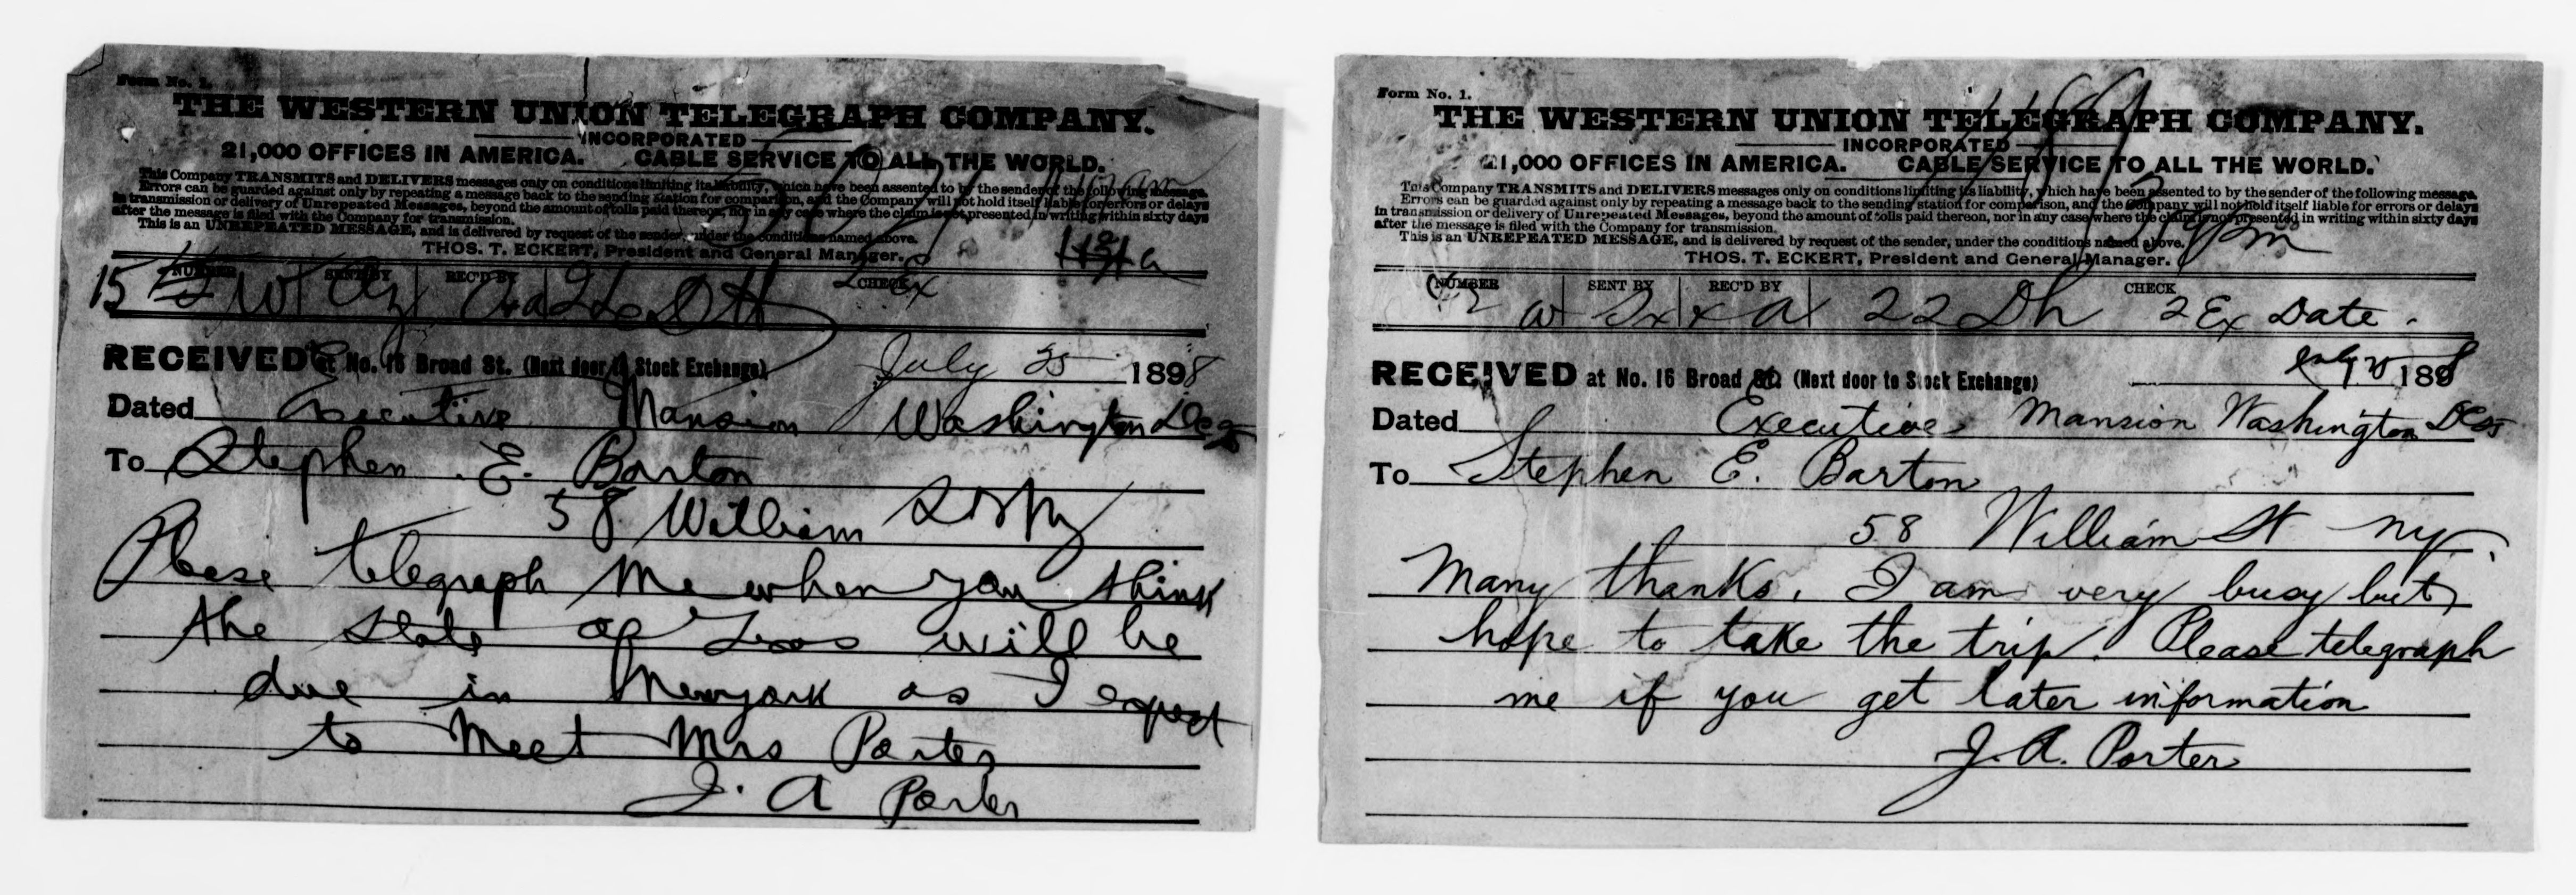 Form No. 1.
THE WESTERN UNION TELEGRAPH COMPANY.
INCORPORATED
21,000 OFFICES IN AMERICA. CABLE SERVICE TO ALL THE WORLD.
This Company TRANSMITS and DELIVERS messages only on conditions limiting its liability, which have been assented to by the sender of the following message.
Errors can be guarded against only by repeating a message back to the sending station for comparison, and the Company will not hold itself liable for errors or delays
in transmission or delivery of Unrepeated Messages, beyond the amount of tolls paid thereon, nor in any case where the claim is not presented in writing within sixty days
after the message is filed with the Company for transmission.
This is an UNREPEATED MESSAGE, and is delivered by request of the sender, under the conditions named above.
THOS. T. ECKERT, President and General Manager.
NUMBER SENT BY REC'D BY CHECK
15
RECEIVED at No. 16 Broad St. (Next door to Stock Exchange) July 25 1898
Dated Executive Mansion Washington
To Stephen E. Barton
58 William St Ny
Please telegraph me when you think
the State of Texas will be
due in Newyork as I expect
to meet Mrs Porter
J. A Porter
Form No. 1.
THE WESTERN UNION TELEGRAPH COMPANY.
INCORPORATED
21,000 OFFICES IN AMERICA. CABLE SERVICE TO ALL THE WORLD.
This Company TRANSMITS and DELIVERS messages only on conditions limiting its liability, which have been assented to by the sender of the following message.
Errors can be guarded against only by repeating a message back to the sending station for comparison, and the Company will not hold itself liable for errors or delays
in transmission or delivery of Unrepeated Messages, beyond the amount of tolls paid thereon, nor in any case where the claim is not presented in writing within sixty days
after the message is filed with the Company for transmission.
This is an UNREPEATED MESSAGE, and is delivered by request of the sender, under the conditions named above.
THOS. T. ECKERT, President and General Manager.
NUMBER SENT BY REC'D BY CHECK
22 Dh 2 Ex Date
RECEIVED at No. 16 Broad St. (Next door to Stock Exchange) July 25 1898
Dated Executive Mansion Washington DC
To Stephen E. Barton
58 William St ny
Many thanks. I am very busy but
hope to take the trip. Please telegraph
me if you get later information
J. A. Porter